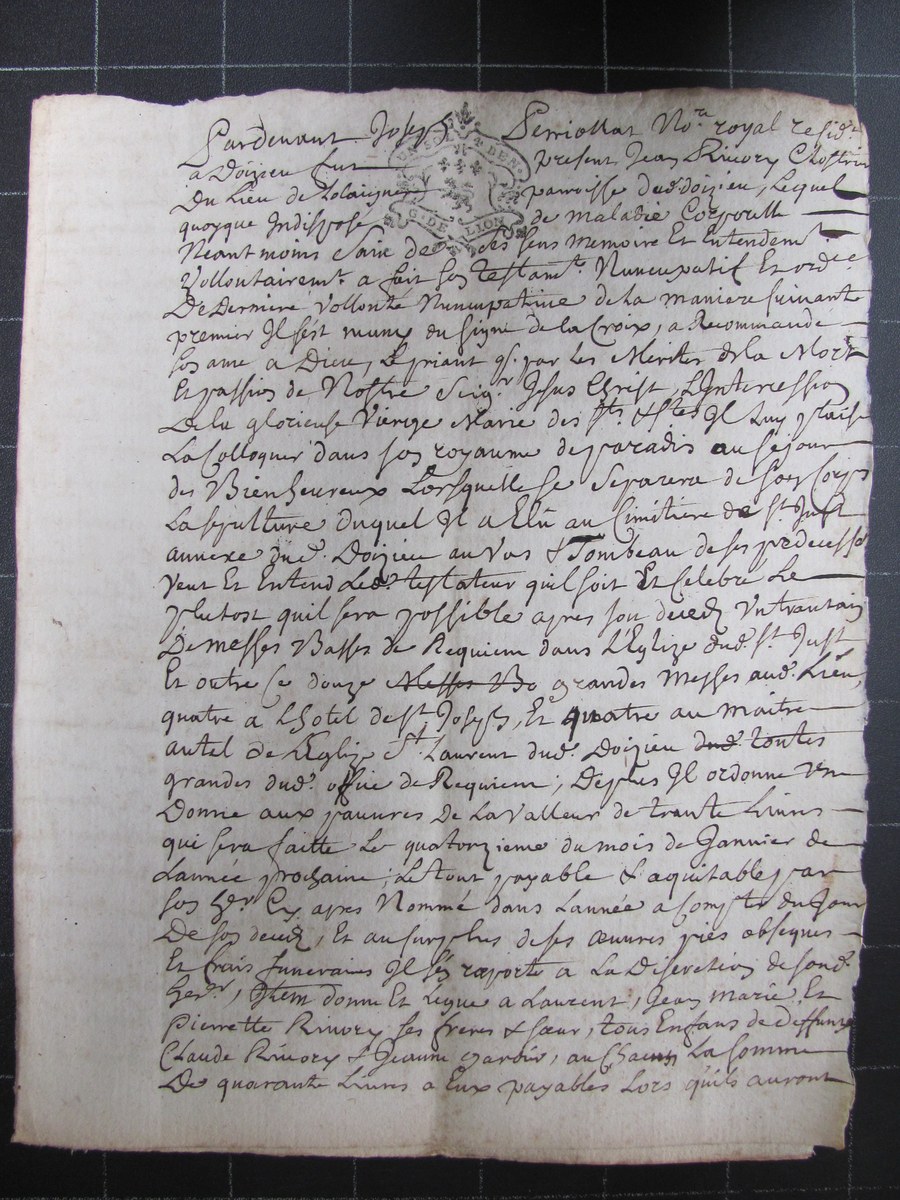 Pardevant Joseph Perriollat No.re royal resid.t
a Doizieu fut present, Jean Rivory Clostrier
Du Lieu de parroisse dud. doizieu, Lequel
UN SOL 4 DEN
G. DE LION
quoyque Indisposé de maladie Corporelle
Neantmoins Sain de ses sens memoire Et Entendem.t
Vollontairem.t a fait son testam.t Nuncupatif Et ord.ce
De Derniere vollonté Nuncupative de la maniere suivante
premier Il s'est muny du signe de la Croix, a Recommandé
son ame a Dieu, Le priant q. par les Merites de la Mort
Et passion de Nostre Seig.r Jesus Christ, L'Intercession
De la glorieuse Vierge Marie des S.ts & S.tes Il Luy plaise
La Colloquer dans son royaume de paradis au sejour
des Bienheureux Lorsquelle se Separera de son Corps
La sepulture duquel Il a Elû au Cimitiere de S.t Just
annexe dud. Doizieu au Vas & Tombeau de ses predecesse
Veut Et Entend Led. testateur quil soit Celebré Le
plutost quil sera possible apres son deced Un trantain
De messes Basses de Requiem dans L'Eglize dud. S.t Just
Et outre ce douze Messes Ba grandes Messes aud. Lieu,
quatre a Lhotel de S.t Joseph, Et quatre au maitre
autel de L'Eglize S.t Laurent dud. Doizieu dud. toutes
grandes dud. office de Requiem; Deplus Il ordonne Une
Donne aux pauvres De La Valleur de trante Livres
qui sera faitte Le quatorzieme du mois de Janvier de
L'année prochaine, Le tout payable & aquitable par
son her. Cy apres Nommé dans L'année a Compter du Jour
De son deced, Et au surplus de ses œuvres pies obseques
Et frais funeraires Il s'en raporte a La Discretion de sond.
her.r, Item donne Et Legue a Laurent, Jean Marie, Et
Pierrette Rivory ses freres & sœur, tous Enfans de deffunt
Claude Rivory & Jeanne au Chacun La somme
De quarante Livres a Eux payables Lors quils auront